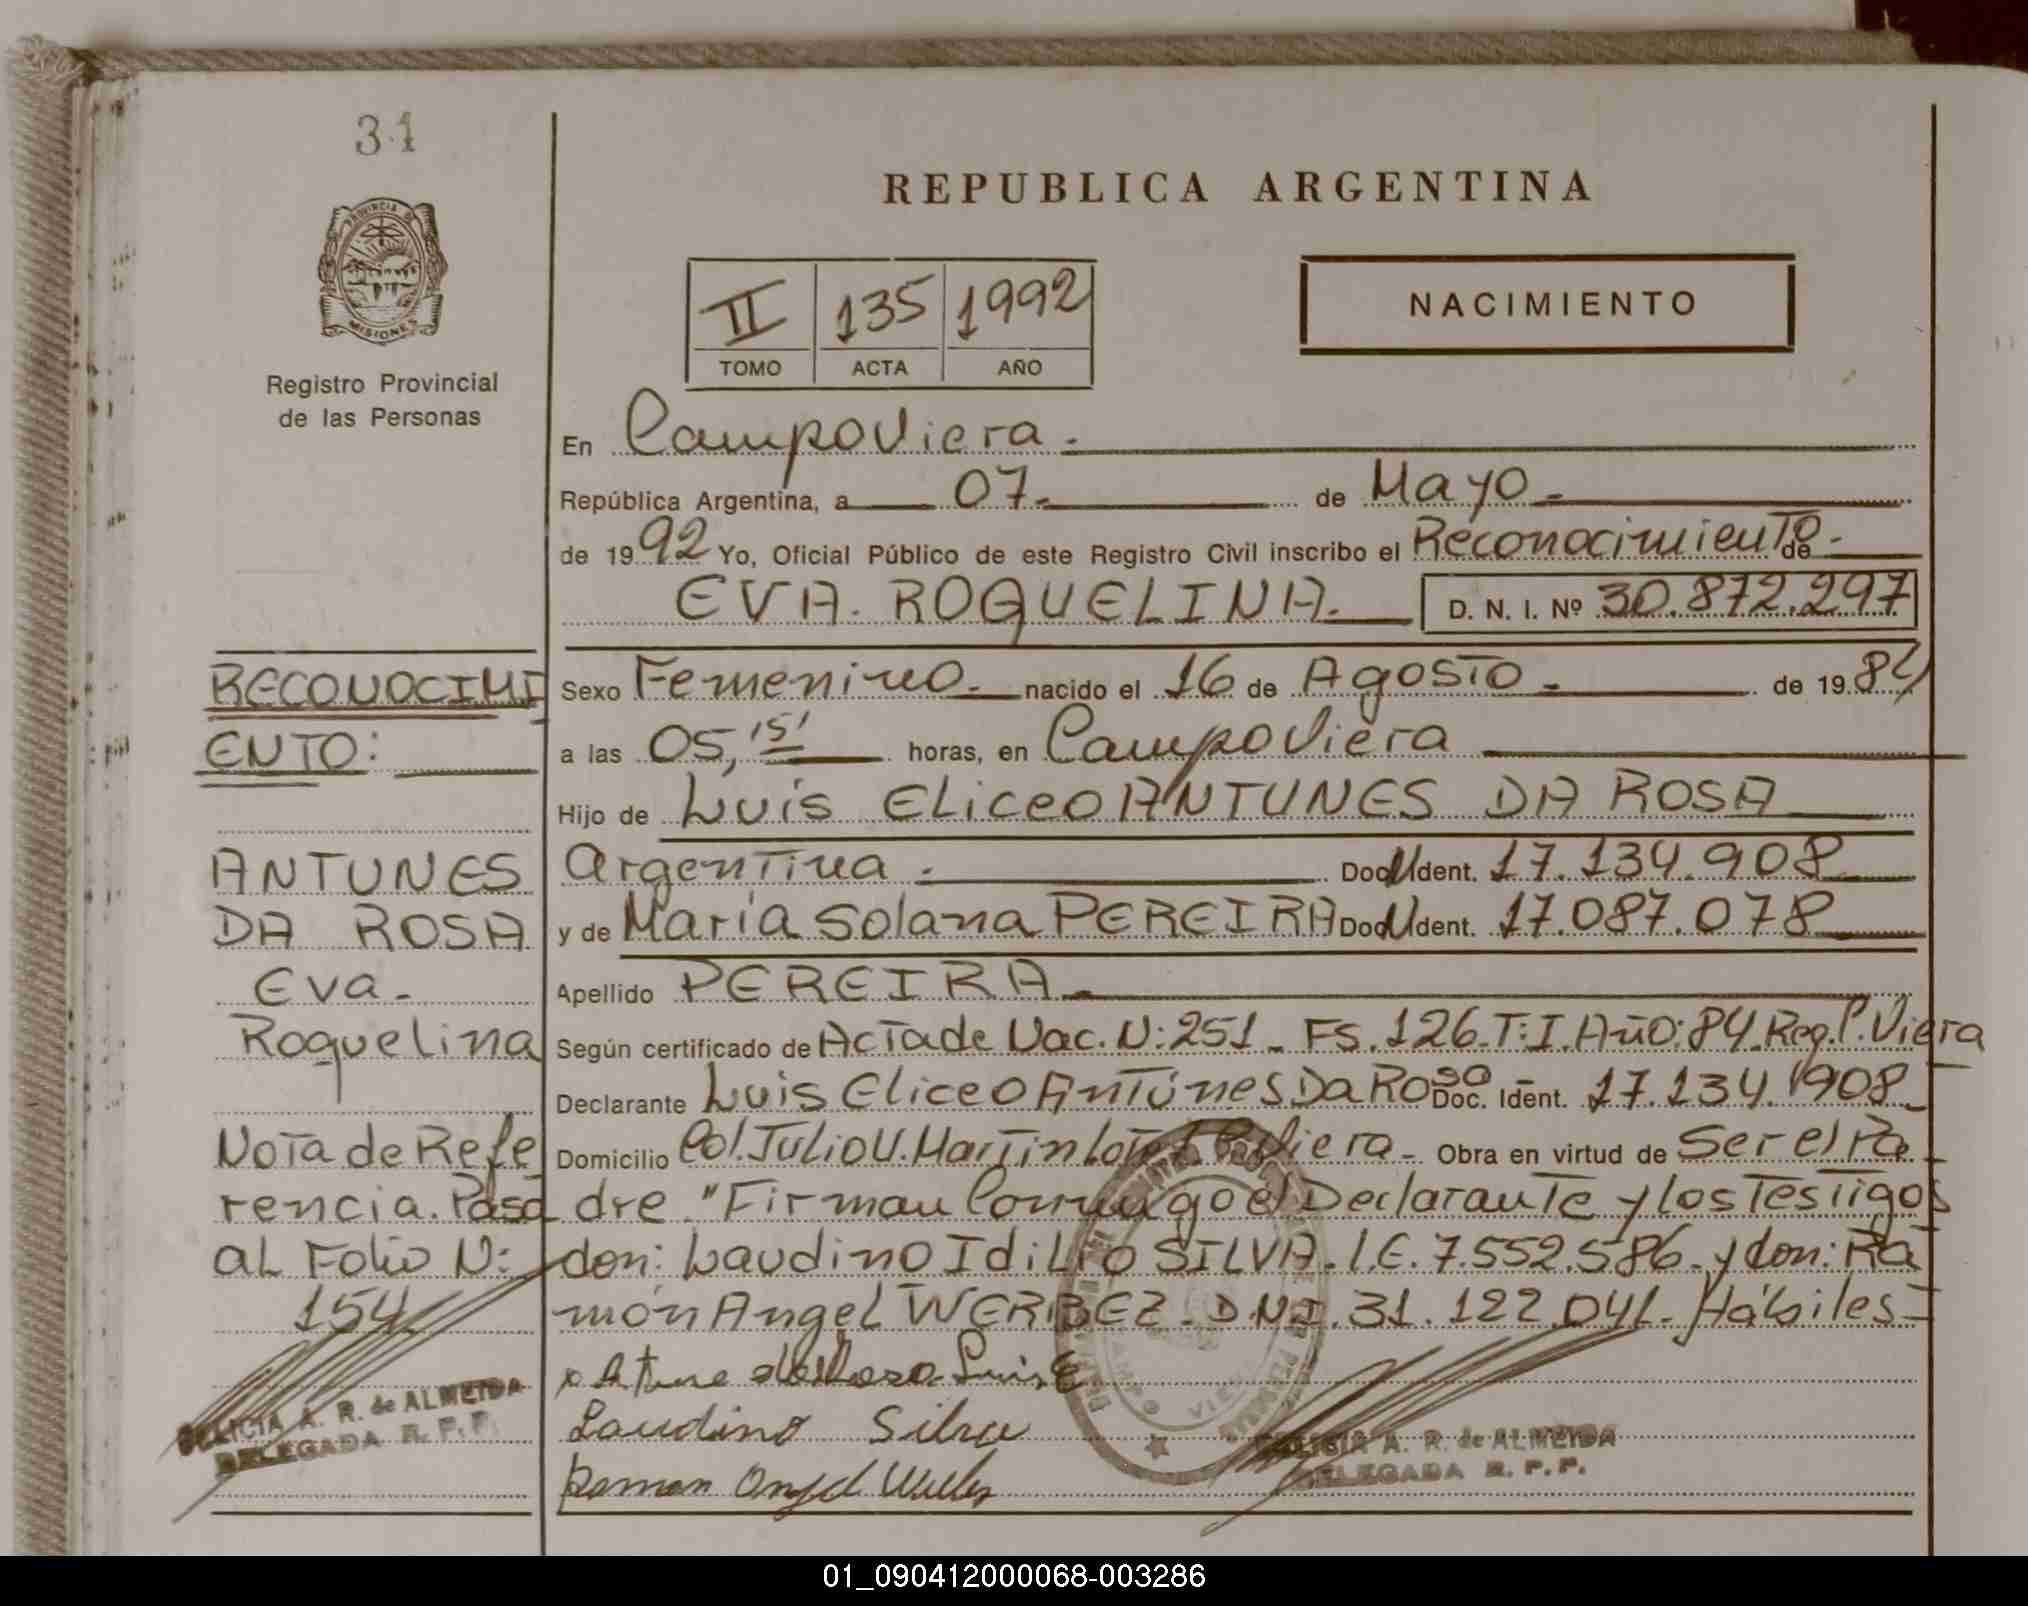 31
PROVINCIA DE
MISIONES
Registro Provincial
de las Personas
REPUBLICA ARGENTINA
II 135 1992
TOMO ACTA AÑO
NACIMIENTO
En Campo Viera.
República Argentina, a 07. de Mayo.
de 1992 Yo, Oficial Público de este Registro Civil inscribo el Reconocimiento. de
EVA. ROQUELINA. D. N. I. Nº 30.872.297
Sexo Femenino. nacido el 16 de Agosto. de 19.84
a las 05,15' horas, en Campo Viera
Hijo de Luis Eliceo ANTUNES DA ROSA
Argentina. Doc. Ident. 17.134.908
y de María Solana PEREIRA Doc. Ident. 17.087.078
Apellido PEREIRA.
Según certificado de Acta de Nac. N: 251. Fs. 126. T: I. Año: 84. Reg. C. Viera
Declarante Luis Eliceo Antúnes Da Rosa Doc. Ident. 17.134.908
Domicilio Col. Julio U. Martin Viera. Obra en virtud de Ser el Pa
dre. "Firman Conmigo el Declarante y los Testigos
don: Laudino Idilio SILVA. L.E. 7.552.586. y don: Ra
món Angel WERBEZ. D.N.I. 31.122.041. Hábiles
Laudino Silva
Ramon Angel
FELICIA A. R. de ALMEIDA
DELEGADA R. P. P.
RECONOCIMI
ENTO:
ANTUNES
DA ROSA
Eva.
Roquelina
Nota de Refe
rencia. Pasa
al Folio N:
154
FELICIA A. R. de ALMEIDA
DELEGADA R. P. P.
01_090412000068-003286